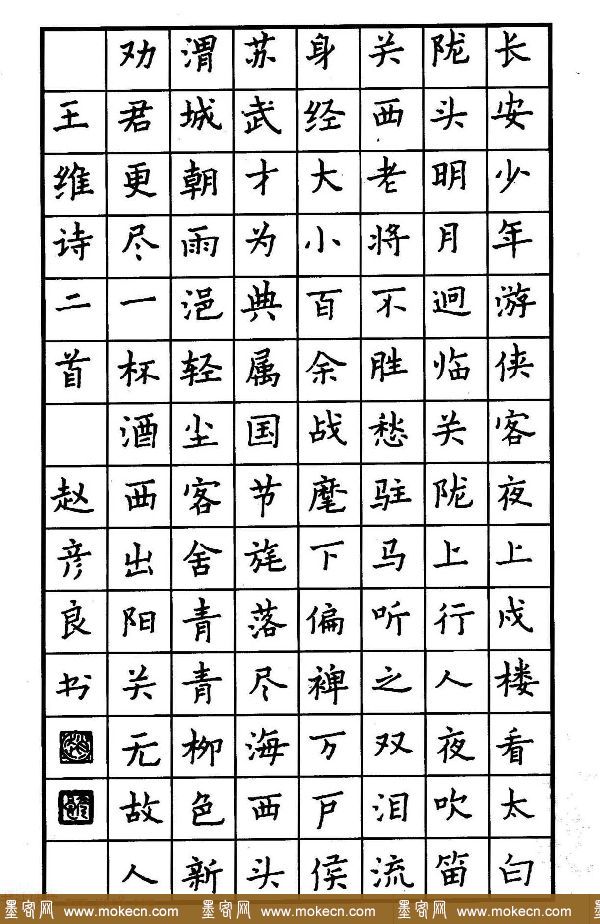 长安少年游侠客夜上戍楼看太白
陇头明月迥临关陇上行人夜吹笛
关西老将不胜愁驻马听之双泪流
身经大小百余战麾下偏裨万户侯
苏武才为典属国节旄落尽海西头
渭城朝雨浥轻尘客舍青青柳色新
劝君更尽一杯酒西出阳关无故人
王维诗二首 赵彦良书
墨客网 www.mokecn.com 墨客网 www.mokecn.com 墨客网 www.mokecn.com